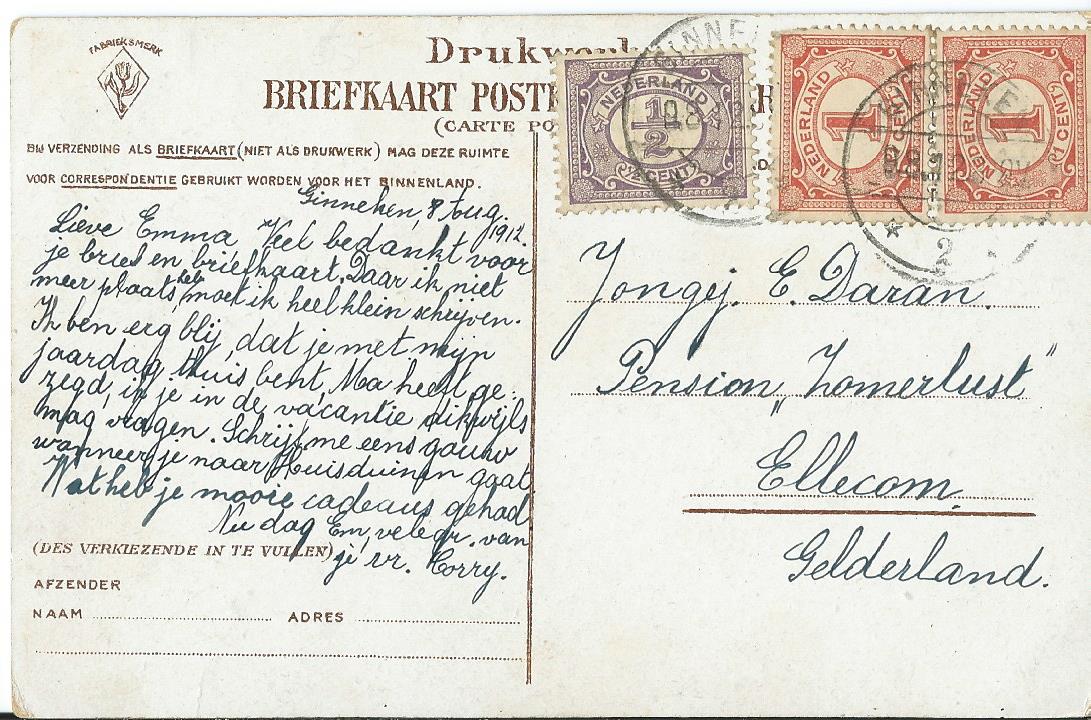 FABRIEKSMERK
Drukw
BRIEFKAART POSTK
(CARTE PO
BIJ VERZENDING ALS BRIEFKAART (NIET ALS DRUKWERK) MAG DEZE RUIMTE
VOOR CORRESPONDENTIE GEBRUIKT WORDEN VOOR HET BINNENLAND.
NEDERLAND
1/2
1/2 CENT
NEDERLAND
1
1 CENT
NEDERLAND
1
1 CENT
2
Ginneken, 8 Aug.
1912.
Lieve Emma, Veel bedankt voor
je brief en briefkaart. Daar ik niet
meer plaats heb, moet ik heel klein schrijven.
Ik ben erg blij, dat je met mijn
jaardag thuis bent, Ma heeft ge-
zegd, ik je in de vacantie dikwijls
mag vragen. Schrijf me eens gauw
wanneer je naar Huisduinen gaat
Wat heb je mooie cadeaus gehad
Nu dag Em, vele gr. van
je vr. Corry.
(DES VERKIEZENDE IN TE VULLEN)
AFZENDER
NAAM ADRES
Jongej. E. Daran.
Pension „Zomerlust"
Ellecom
Gelderland.